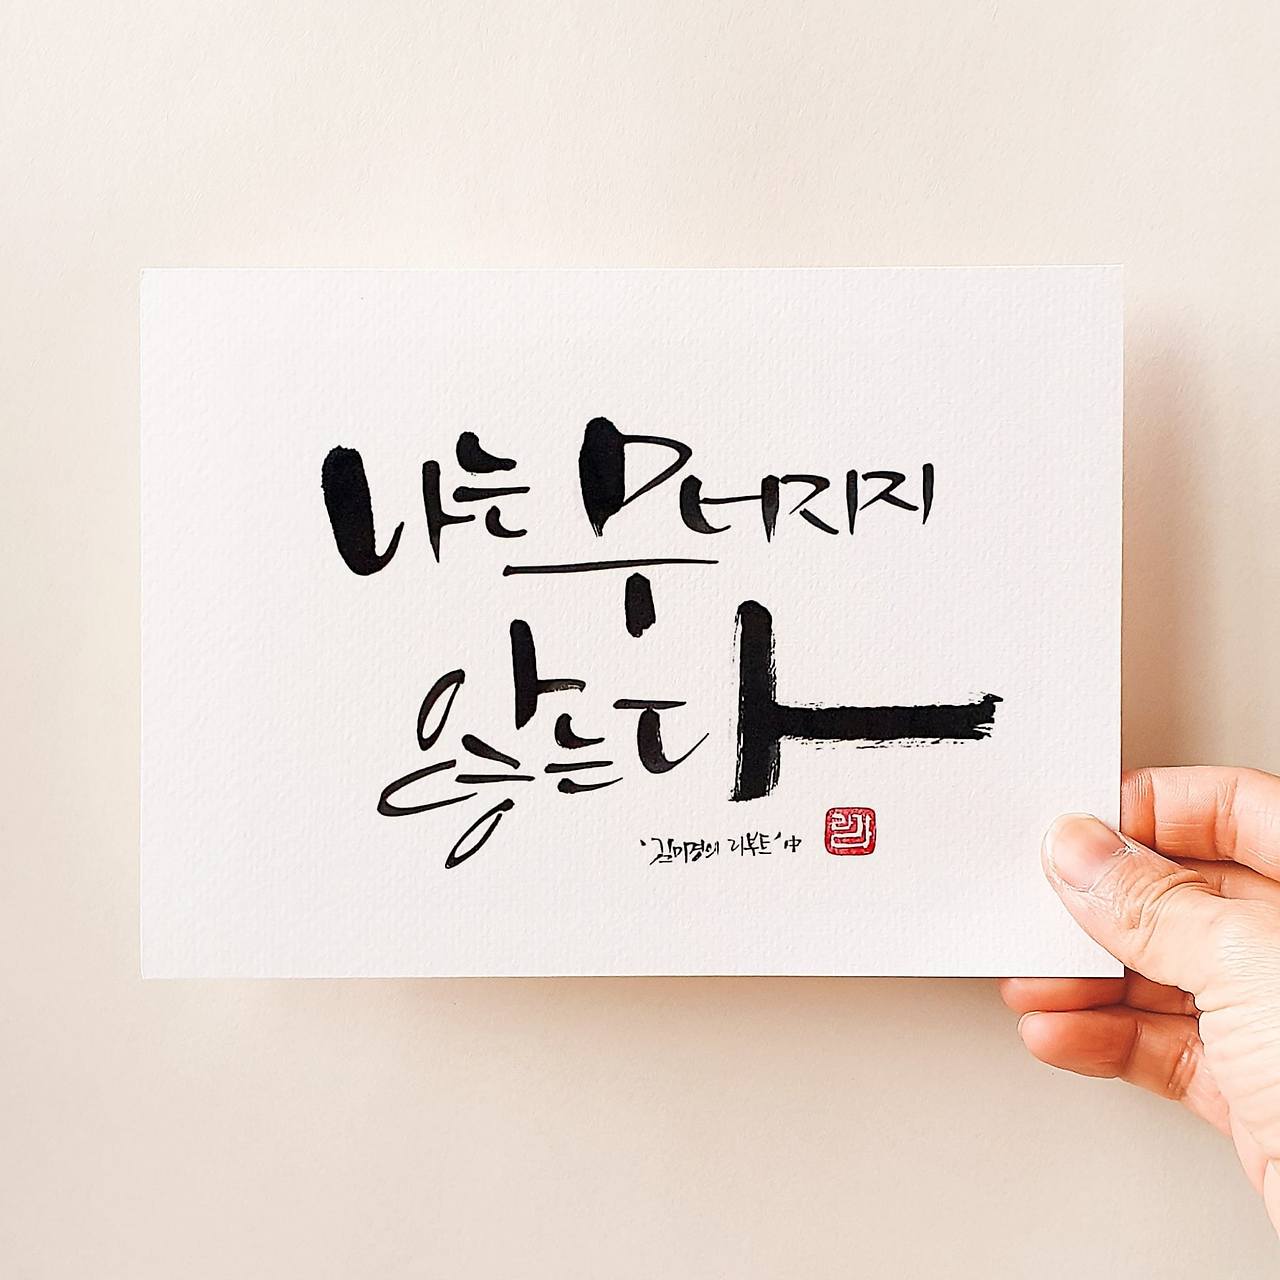 나는 무너지지
않는다
'김미경의 리부트' 中